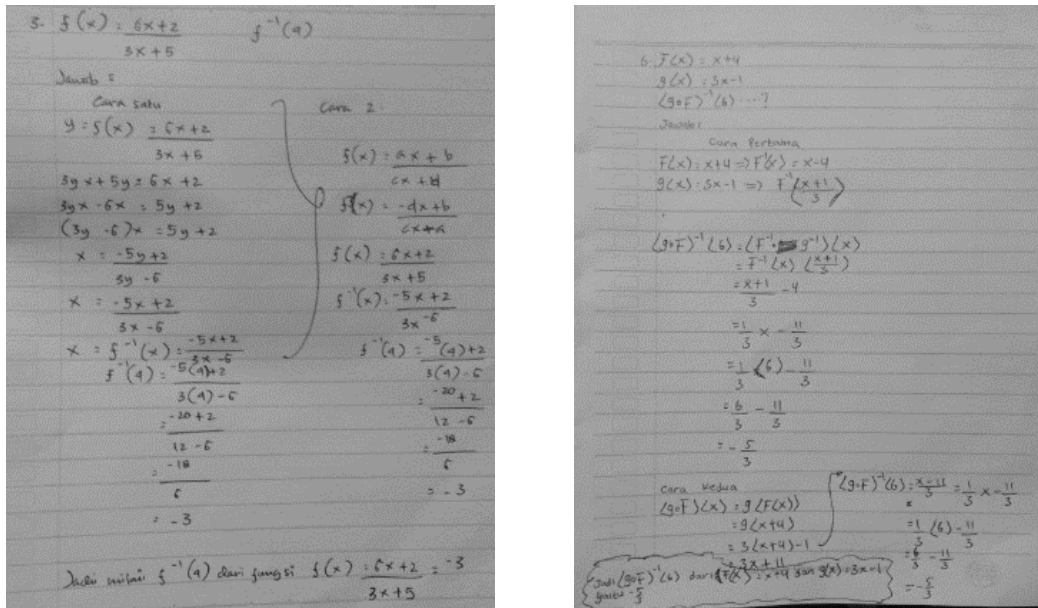 3. f(x) = 6x+2 / 3x+5 f⁻¹(4)
Jawab :
Cara satu
y = f(x) = 6x+2 / 3x+5
3yx + 5y = 6x +2
3yx -6x = 5y +2
(3y -6)x = 5y +2
x = -5y +2 / 3y -6
x = -5x +2 / 3x -6
x = f⁻¹(x) = -5x+2 / 3x -6
f⁻¹(4) = -5(4)+2 / 3(4) -6
= -20 +2 / 12 -6
= -18 / 6
= -3
Cara 2 :
f(x) = ax + b / cx + d
f(x) = -dx+b / cx+a
f(x) = 6x+2 / 3x+5
f⁻¹(x) = -5x +2 / 3x -6
f⁻¹(4) = -5(4)+2 / 3(4) -6
= -20 +2 / 12 -6
= -18 / 6
= -3
Jadi nilai f⁻¹(4) dari fungsi f(x) = 6x +2 / 3x +5 = -3
6. F(x) = x+4
g(x) = 3x-1
(g∘F)⁻¹(6) ....?
Jawab :
Cara Pertama
F(x) = x+4 => F⁻¹(x) = x-4
g(x) = 3x-1 => F⁻¹(x+1 / 3)
(g∘F)⁻¹(6) = (F⁻¹∘g⁻¹)(x)
= F⁻¹(x) (x+1 / 3)
= x+1 / 3 - 4
= 1/3 x - 11/3
= 1/3 (6) - 11/3
= 6/3 - 11/3
= - 5/3
Cara Kedua
(g∘F)(x) = g(F(x))
= g(x+4)
= 3(x+4)-1
= 3x+11
(g∘F)⁻¹(6) = x-11 / 3 = 1/3 x - 11/3
= 1/3 (6) - 11/3
= 6/3 - 11/3
= - 5/3
Jadi (g∘F)⁻¹(6) dari F(x) = x+4 dan g(x) = 3x-1
yaitu -5/3